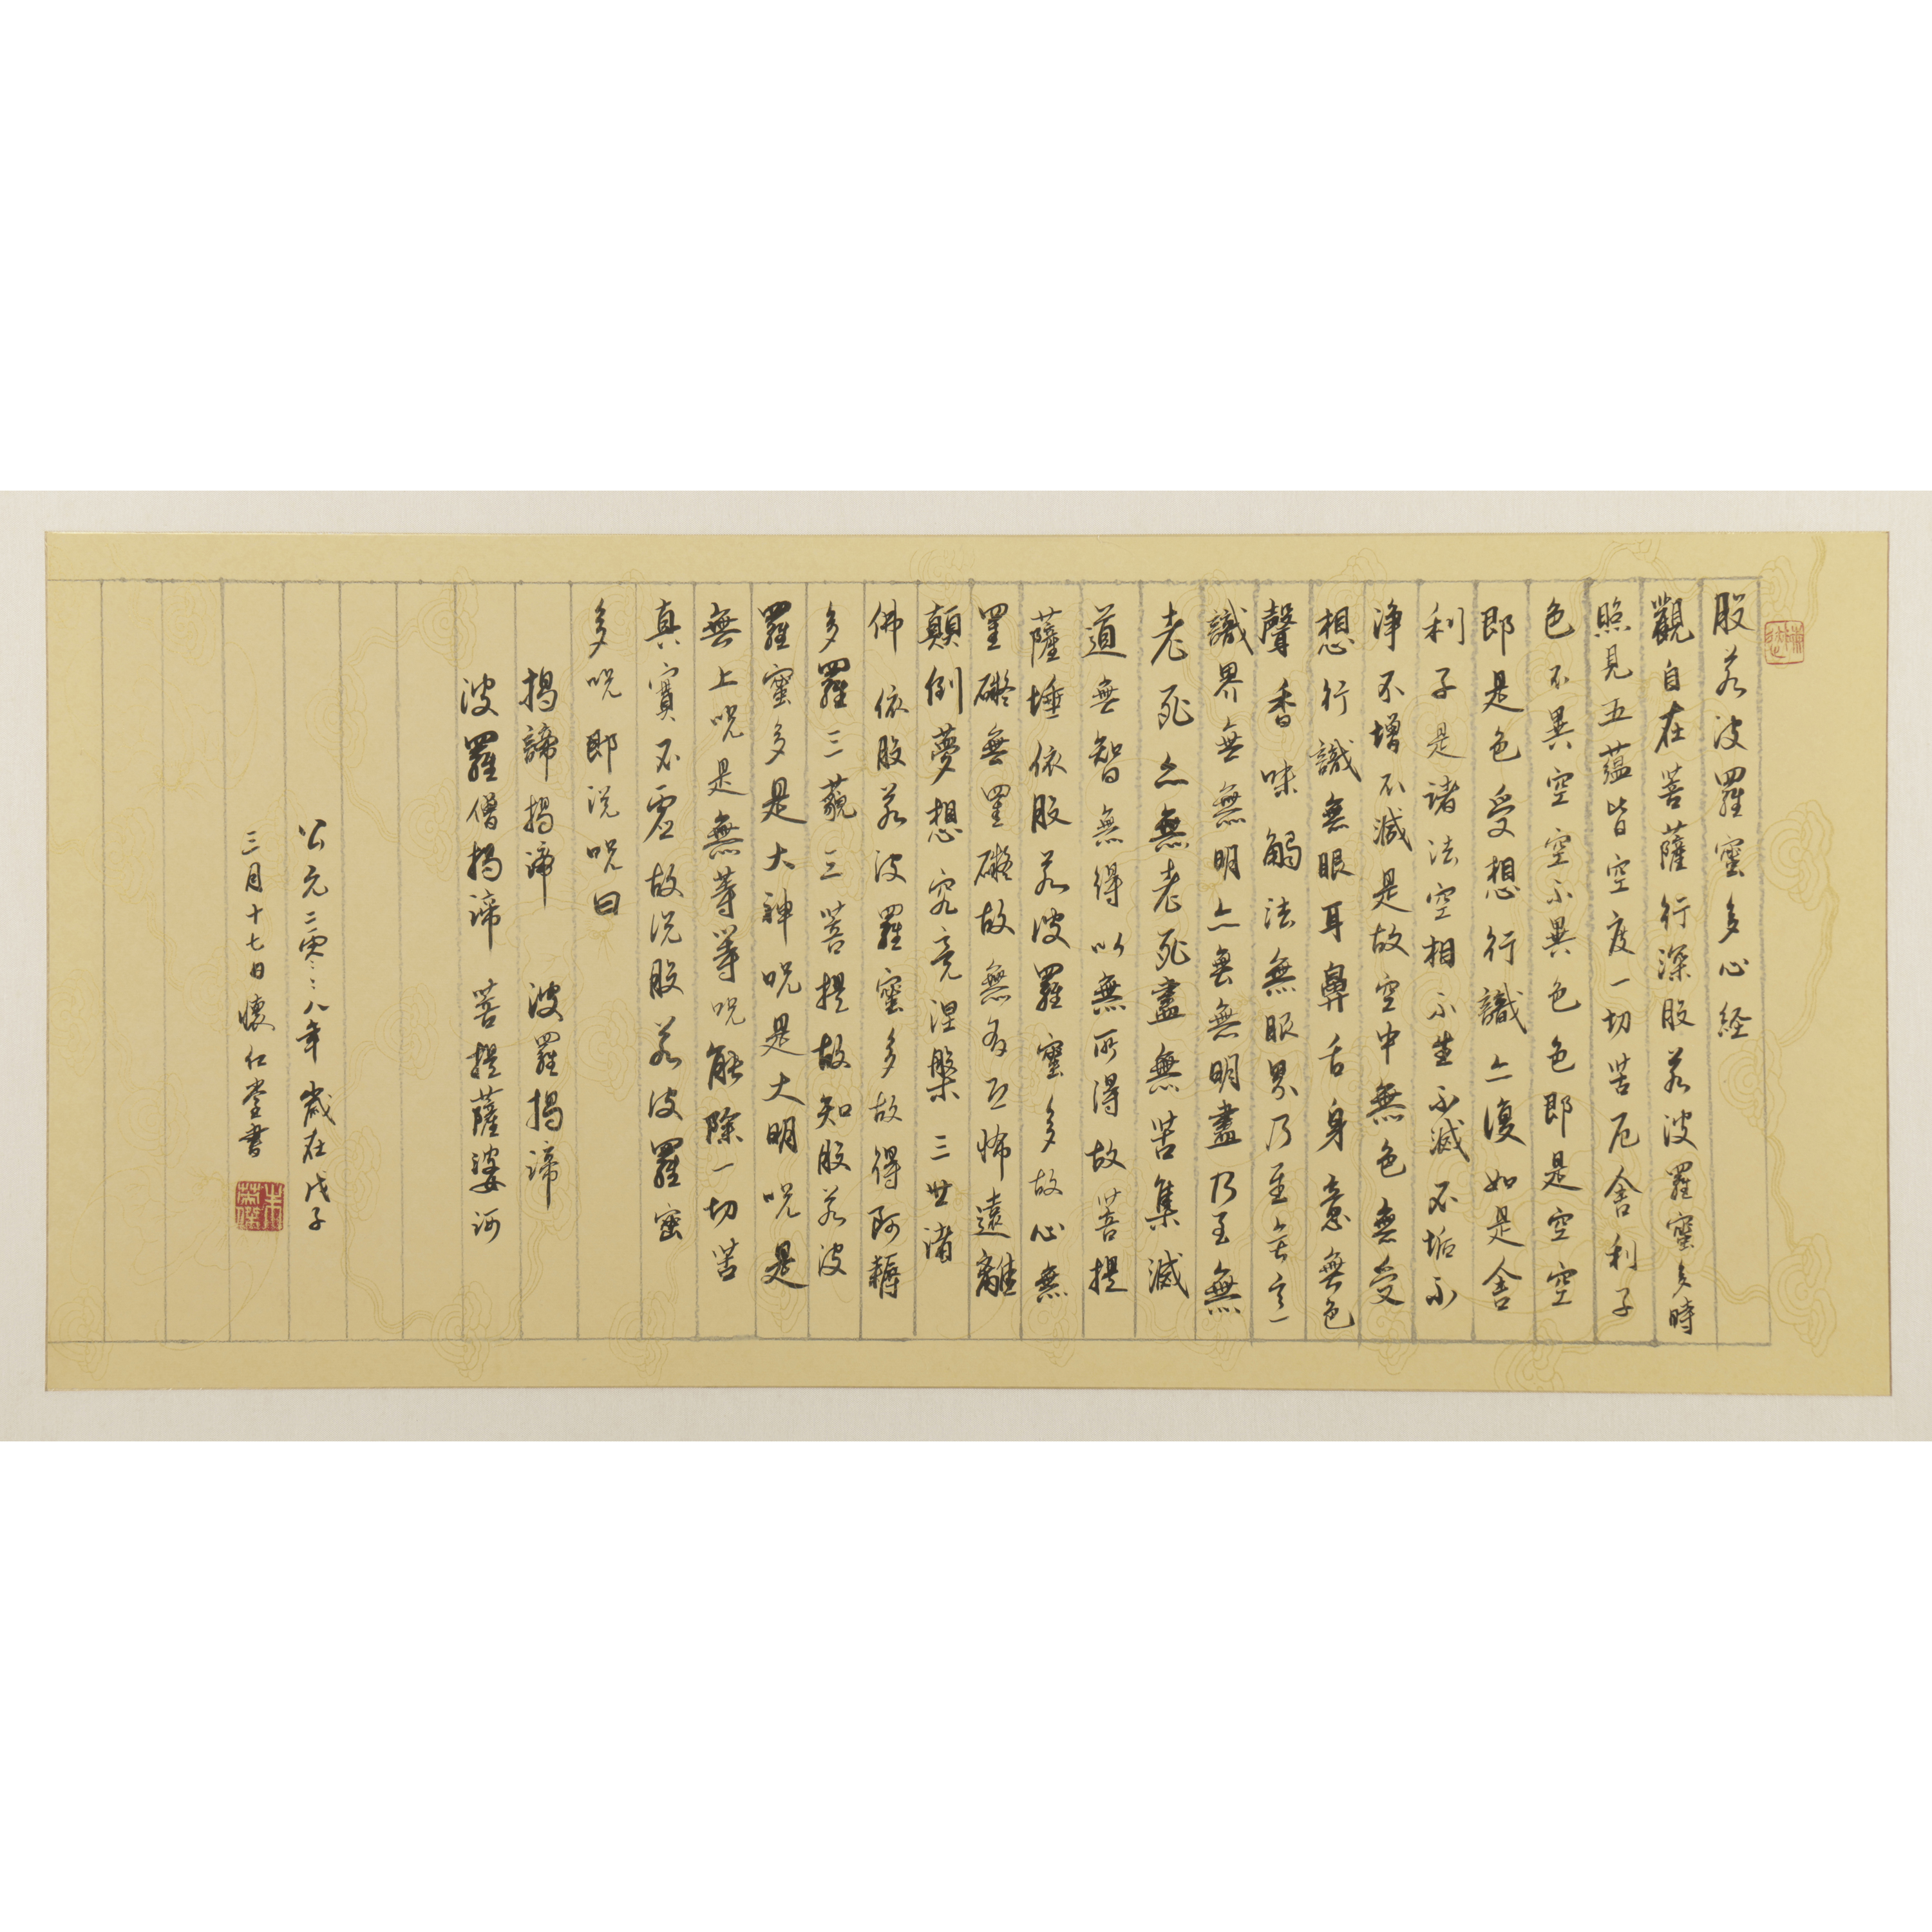 般若波羅蜜多心経
觀自在菩薩行深般若波羅蜜多時
照見五蘊皆空度一切苦厄舍利子
色不異空空不異色色即是空空
即是色受想行識亦復如是舍
利子是諸法空相不生不滅不垢不
淨不增不減是故空中無色無受
想行識無眼耳鼻舌身意無色
聲香味觸法無眼界乃至無意
識界無無明亦無無明盡乃至無
老死亦無老死盡無苦集滅
道無智無得以無所得故菩提
薩埵依般若波羅蜜多故心無
罣礙無罣礙故無有恐怖遠離
顛倒夢想究竟涅槃三世諸
佛依般若波羅蜜多故得阿耨
多羅三藐三菩提故知般若波
羅蜜多是大神咒是大明咒是
無上咒是無等等咒能除一切苦
真實不虛故說般若波羅蜜
多咒即說咒曰
揭諦揭諦 波羅揭諦
波羅僧揭諦 菩提薩婆訶
公元二零零八年歲在戊子
三月十七日懷仁堂書